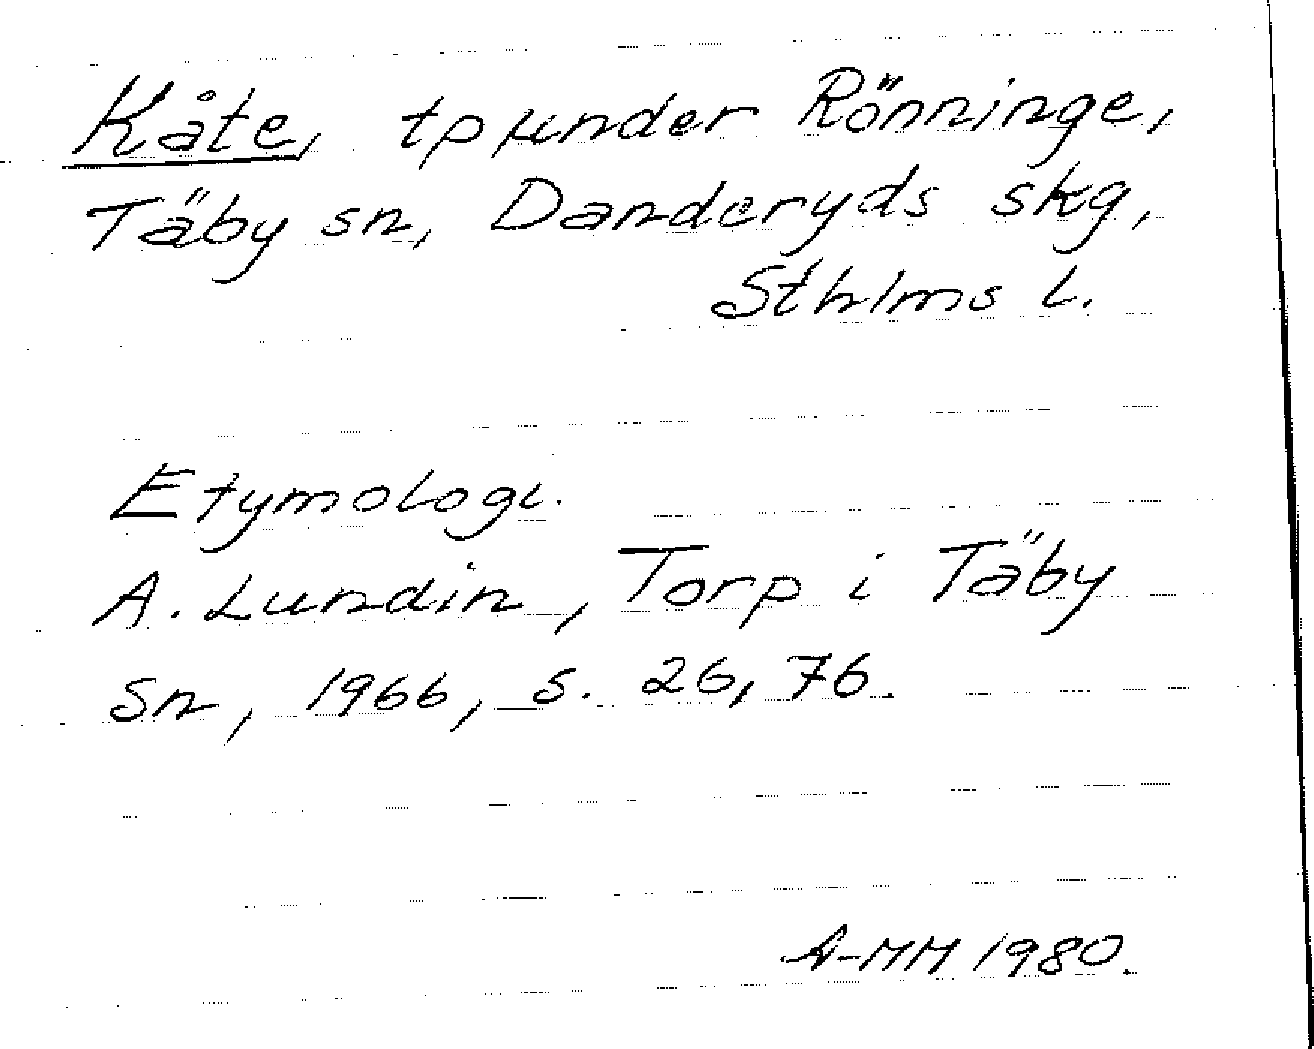 Kåte, tp under Rönninge,
Täby sn, Danderyds skg,
Sthlms l.
Etymologi.
A. Lundin, Torp i Täby
sn, 1966, s. 26, 76.
A-MM 1980.